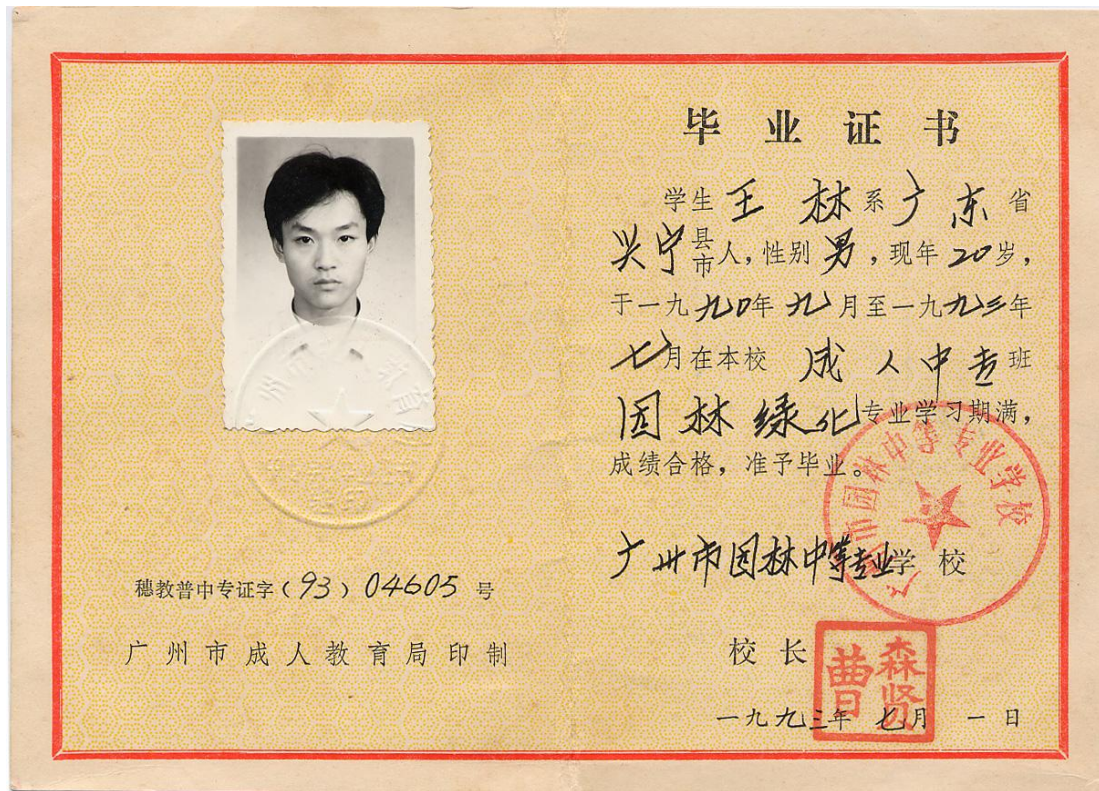 毕业证书
学生王林系广东省
兴宁县市人，性别男，现年20岁，
于一九九0年九月至一九九三年
七月在本校成人中专班
园林绿化专业学习期满，
成绩合格，准予毕业。
广州市园林中等专业学校
广州市园林中等专业学校
校长
曹森贤
一九九三年七月一日
穗教普中专证字（93）04605号
广州市成人教育局印制